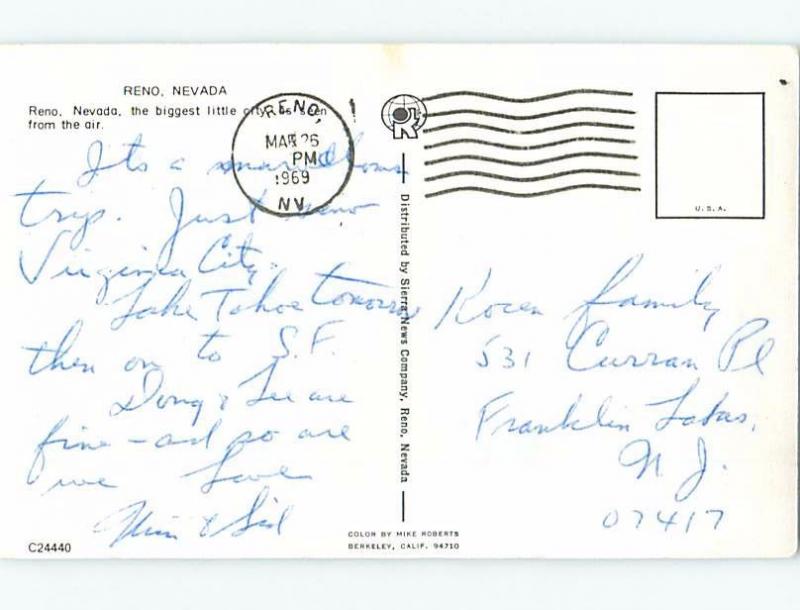 RENO, NEVADA
Reno, Nevada, the biggest little city as seen
from the air.
RENO,
MAR 26
PM
1969
NV
U.S.A.
Its a marvellous
trip. Just
Virginia City.
Lake Tahoe tomorrow
then on to S.F.
Doug & Lee are
fine - and so are
we Love
& Sid
Distributed by Sierra News Company, Reno, Nevada
family
531 Curran Pl
Franklin Lakes,
N.J.
07417
C24440
COLOR BY MIKE ROBERTS
BERKELEY, CALIF. 94710